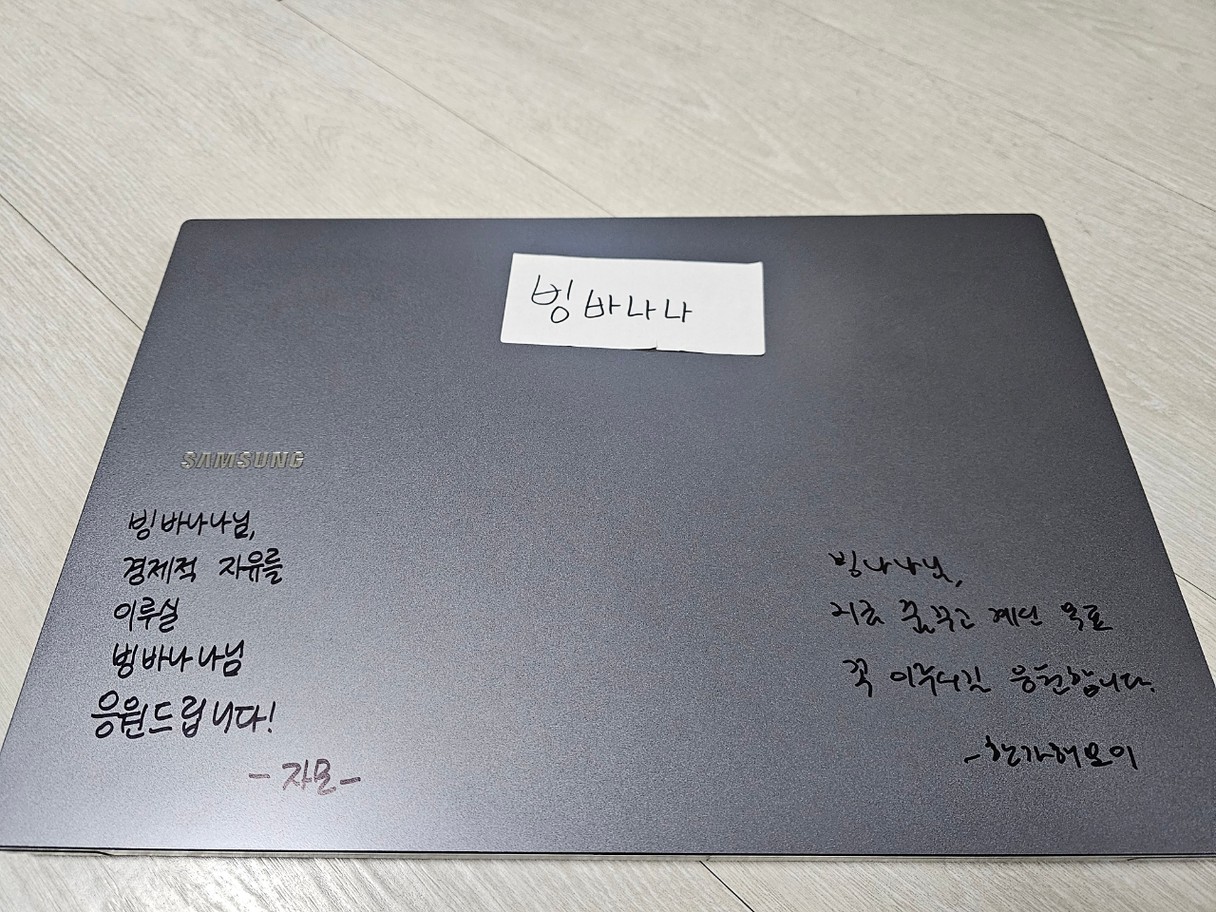 빙바나나
SAMSUNG
빙바나나님,
경제적 자유를
이루실
빙바나나님
응원드립니다!
- 자몬 -
빙나나님,
꿈꾸고 계신 목표
꼭 이루시길 응원합니다.